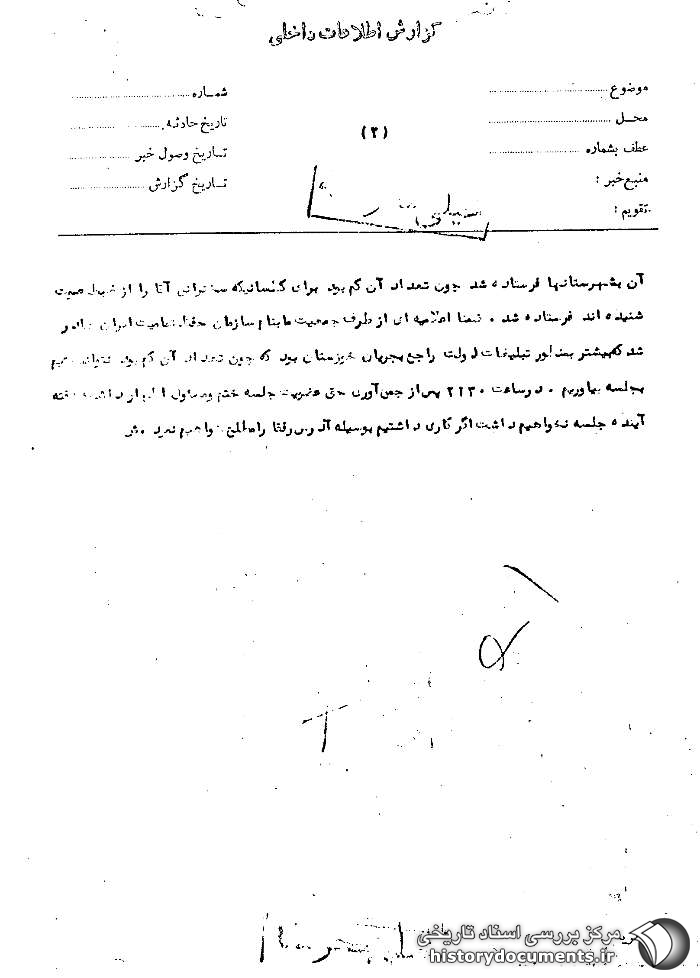 گزارش اطلاعات داخلی
موضوع
شماره
محل
تاریخ حادثه
(۲)
عطف بشماره
تاریخ وصول خبر
منبع خبر :
تاریخ گزارش
تقویم :
آن بشهرستانها فرستاده شد چون تعداد آن کم بود برای کسانیکه سخنرانی آقا را از ضبط صوت
شنیده اند فرستاده شد . ضمنا اعلامیه ای از طرف جمعیت ما بنام سازمان حفظ تمامیت ایران صادر
شد که بیشتر بمنظور تبلیغات دولت راجع بجریان خوزستان بود که چون تعداد آن کم بود نتوانستیم
بجلسه بیاوریم . در ساعت ۲۱۳۰ پس از جمع‌آوری حق عضویت جلسه ختم و مسئول اظهار داشت هفته
آینده جلسه نخواهیم داشت اگر کاری داشتیم بوسیله آدرس رفقا را مطلع خواهیم نمود .
مرکز بررسی اسناد تاریخی
historydocuments.ir